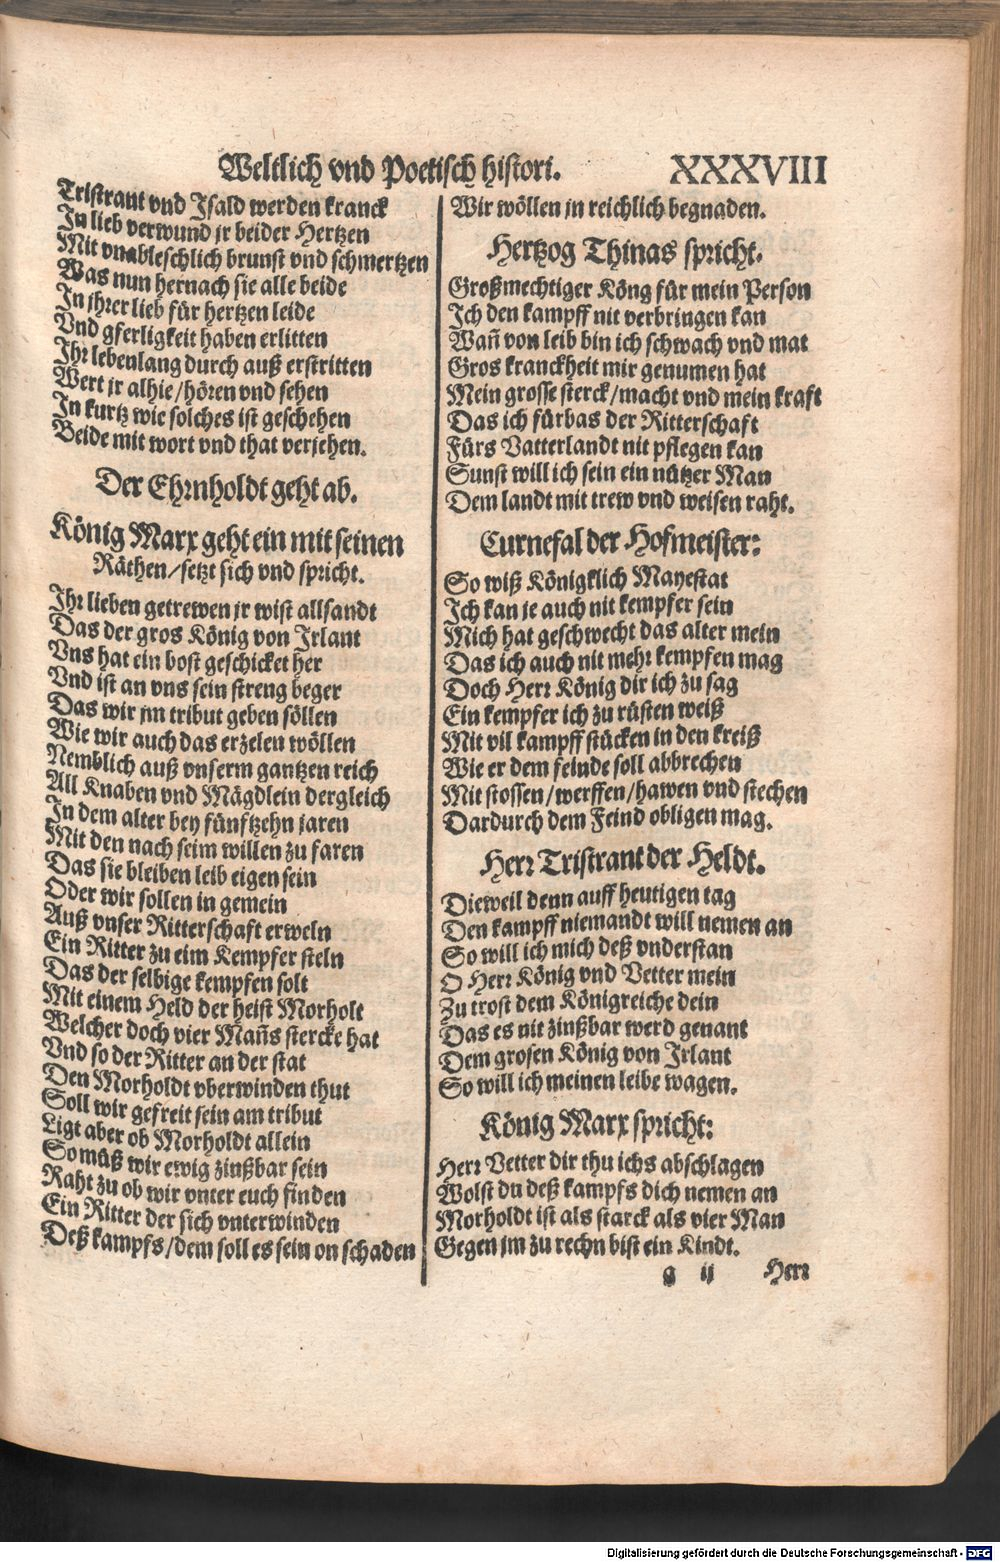 Weltlich vnd Poetisch histori. XXXVIII
Tristrant vnd Isald werden kranck
In lieb verwund jr beider Hertzen
Mit vnableschlich brunst vnd schmertzen
Was nun hernach sie alle beide
In jhrer lieb für hertzen leide
Vnd gferligkeit haben erlitten
Ihr lebenlang durch auß erstritten
Wert jr alhie/hören vnd sehen
In kurtz wie solches ist geschehen
Beide mit wort vnd that verjehen.
Der Ehrnholdt geht ab.
König Marx geht ein mit seinen
Räthen/setzt sich vnd spricht.
Ihr lieben getrewen jr wist allsandt
Das der gros König von Irlant
Vns hat ein bost geschicket her
Vnd ist an vns sein streng beger
Das wir jm tribut geben söllen
Wie wir auch das erzelen wöllen
Nemblich auß vnserm gantzen reich
All Knaben vnd Mägdlein dergleich
In dem alter bey fünftzehn jaren
Mit den nach seim willen zu faren
Das sie bleiben leib eigen sein
Oder wir sollen in gemein
Auß vnser Ritterschaft erweln
Ein Ritter zu eim Kempfer steln
Das der selbige kempfen solt
Mit einem Held der heist Morholt
Welcher doch vier Mañs stercke hat
Vnd so der Ritter an der stat
Den Morholdt vberwinden thut
Soll wir gefreit sein am tribut
Ligt aber ob Morholdt allein
So müß wir ewig zinßbar sein
Raht zu ob wir vnter euch finden
Ein Ritter der sich vnterwinden
Deß kampfs/dem soll es sein on schaden
Wir wöllen jn reichlich begnaden.
Hertzog Thinas spricht.
Großmechtiger Köng für mein Person
Ich den kampff nit verbringen kan
Wañ von leib bin ich schwach vnd mat
Gros kranckheit mir genumen hat
Mein grosse sterck/macht vnd mein kraft
Das ich fürbas der Ritterschaft
Fürs Vatterlandt nit pflegen kan
Sunst will ich sein ein nützer Man
Dem landt mit trew vnd weisen raht.
Curnefal der Hofmeister:
So wiß Königklich Mayestat
Ich kan je auch nit kempfer sein
Mich hat geschwecht das alter mein
Das ich auch nit mehr kempfen mag
Doch Herr König dir ich zu sag
Ein kempfer ich zu rüsten weiß
Mit vil kampff stücken in den kreiß
Wie er dem feinde soll abbrechen
Mit stossen/werffen/hawen vnd stechen
Dardurch dem Feind obligen mag.
Herr Tristrant der Heldt.
Dieweil denn auff heutigen tag
Den kampff niemandt will nemen an
So will ich mich deß vnderstan
O Herr König vnd Vetter mein
Zu trost dem Königreiche dein
Das es nit zinßbar werd genant
Dem grosen König von Irlant
So will ich meinen leibe wagen.
König Marx spricht:
Herr Vetter dir thu ichs abschlagen
Wolst du deß kampfs dich nemen an
Morholdt ist als starck als vier Man
Gegen jm zu rechn bist ein Kindt.
g ij Herr
Digitalisierung gefördert durch die Deutsche Forschungsgemeinschaft - DFG